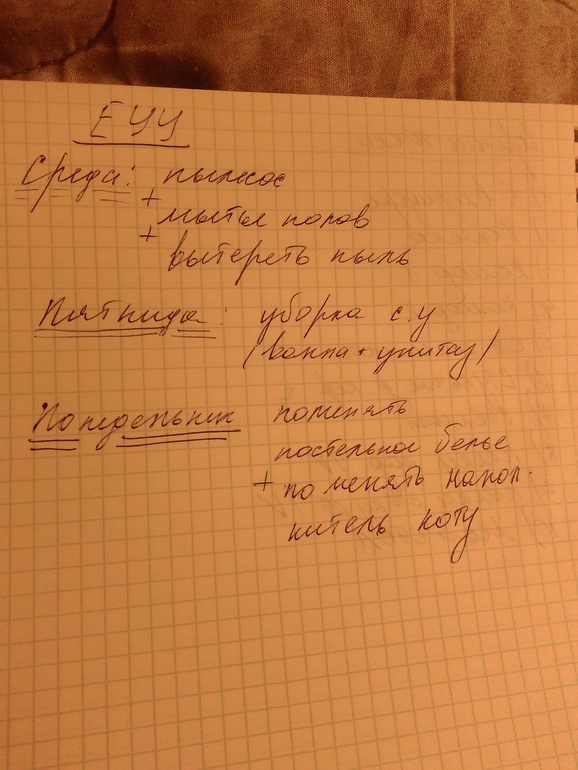 ЕУУ
Среда: пылесос
+
мытье полов
+
вытереть пыль
Пятница: уборка с.у
(ванна + унитаз)
Понедельник поменять
постельное белье
+ поменять напол-
нитель коту